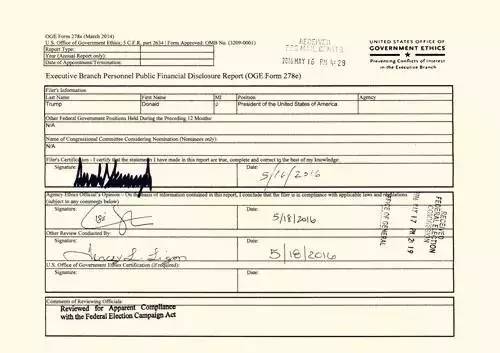 OGE Form 278e (March 2014)
U.S. Office of Government Ethics; 5 C.F.R. part 2634 | Form Approved: OMB No. (3209-0001)
Report Type:
Year (Annual Report only):
Date of Appointment/Termination:
RECEIVED
2016 MAY 16 PM 4:29
UNITED STATES OFFICE OF
GOVERNMENT ETHICS
Preventing Conflicts of Interest
in the Executive Branch
Executive Branch Personnel Public Financial Disclosure Report (OGE Form 278e)
Filer's Information
Last Name First Name MI Position Agency
Trump Donald J President of the United States of America
Other Federal Government Positions Held During the Preceding 12 Months:
N/A
Name of Congressional Committee Considering Nomination (Nominees only):
N/A
Filer's Certification - I certify that the statements I have made in this report are true, complete and correct to the best of my knowledge:
Signature: Date:
5/16/2016
Agency Ethics Official's Opinion - On the basis of information contained in this report, I conclude that the filer is in compliance with applicable laws and regulations
(subject to any comments below)
Signature: Date:
5/18/2016
Other Review Conducted By:
Signature: Date:
5/18/2016
U.S. Office of Government Ethics Certification (if required):
Signature: Date:
Comments of Reviewing Officials:
Reviewed for Apparent Compliance
with the Federal Election Campaign Act
RECEIVED
FEDERAL ELECTION
COMMISSION
17 PM 2:19
OFFICE OF GENERAL